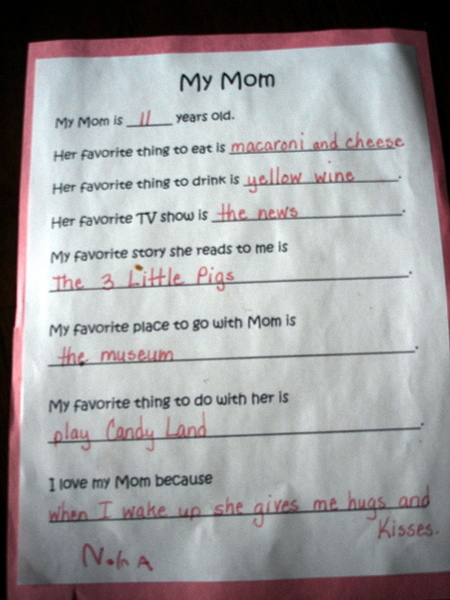 My Mom
My Mom is 11 years old.
Her favorite thing to eat is macaroni and cheese
Her favorite thing to drink is yellow wine.
Her favorite TV show is the news.
My favorite story she reads to me is
The 3 Little Pigs.
My favorite place to go with Mom is
the museum.
My favorite thing to do with her is
play Candy Land.
I love my Mom because
when I wake up she gives me hugs and
Kisses.